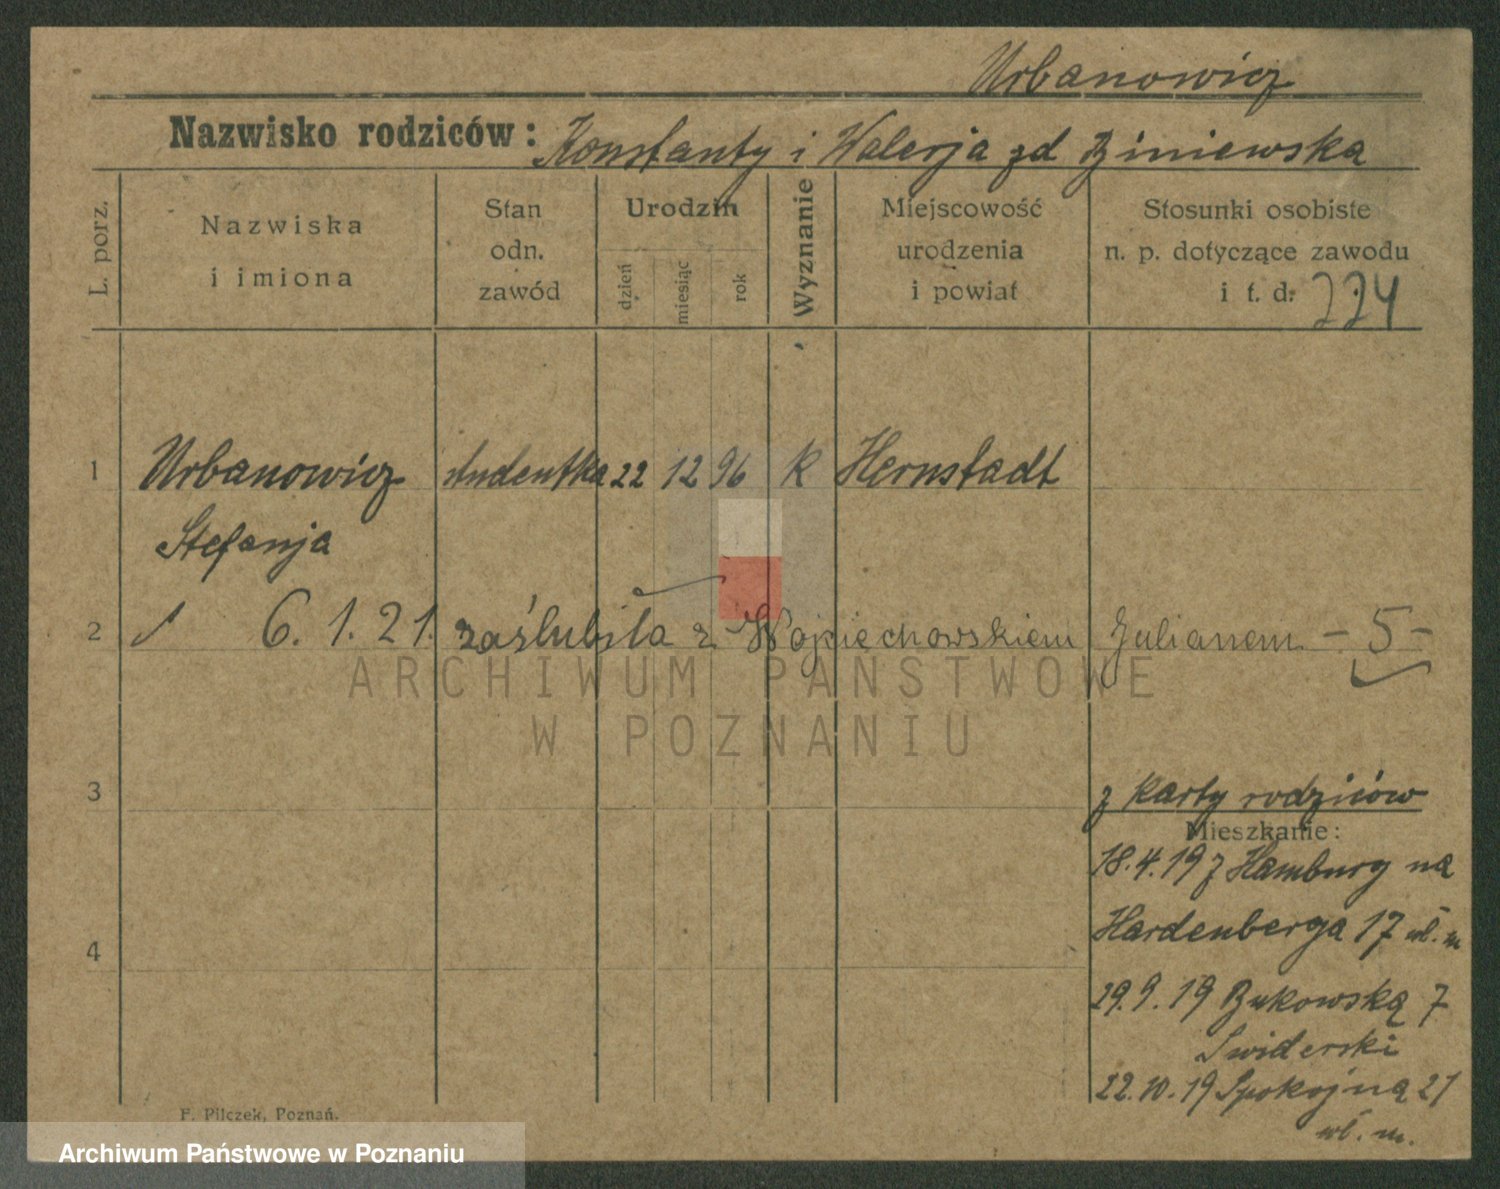 Urbanowicz
Nazwisko rodziców: Konstanty i Walerja zd Biniewska
L. porz.
Nazwiska
i imiona
Stan
odn.
zawód
Urodzin
dzień
miesiąc
rok
Wyznanie
Miejscowość
urodzenia
i powiat
Stosunki osobiste
n. p. dotyczące zawodu
i t. d. 224
1 Urbanowicz studentka 22 12 96 k Hernstadt
Stefanja
2 6. 1. 21. zaślubiła z Wojciechowskiem Julianem - 5 -
3
z karty rodziców
Mieszkanie:
18.4.19 z Hamburg na
4
Hardenberga 17 wł. m
29.9.19 Bukowską 7
Swiderski
22.10.19 Spokojną 21
wł. m.
F. Pilczek, Poznań.
ARCHIWUM PAŃSTWOWE
W POZNANIU
Archiwum Państwowe w Poznaniu